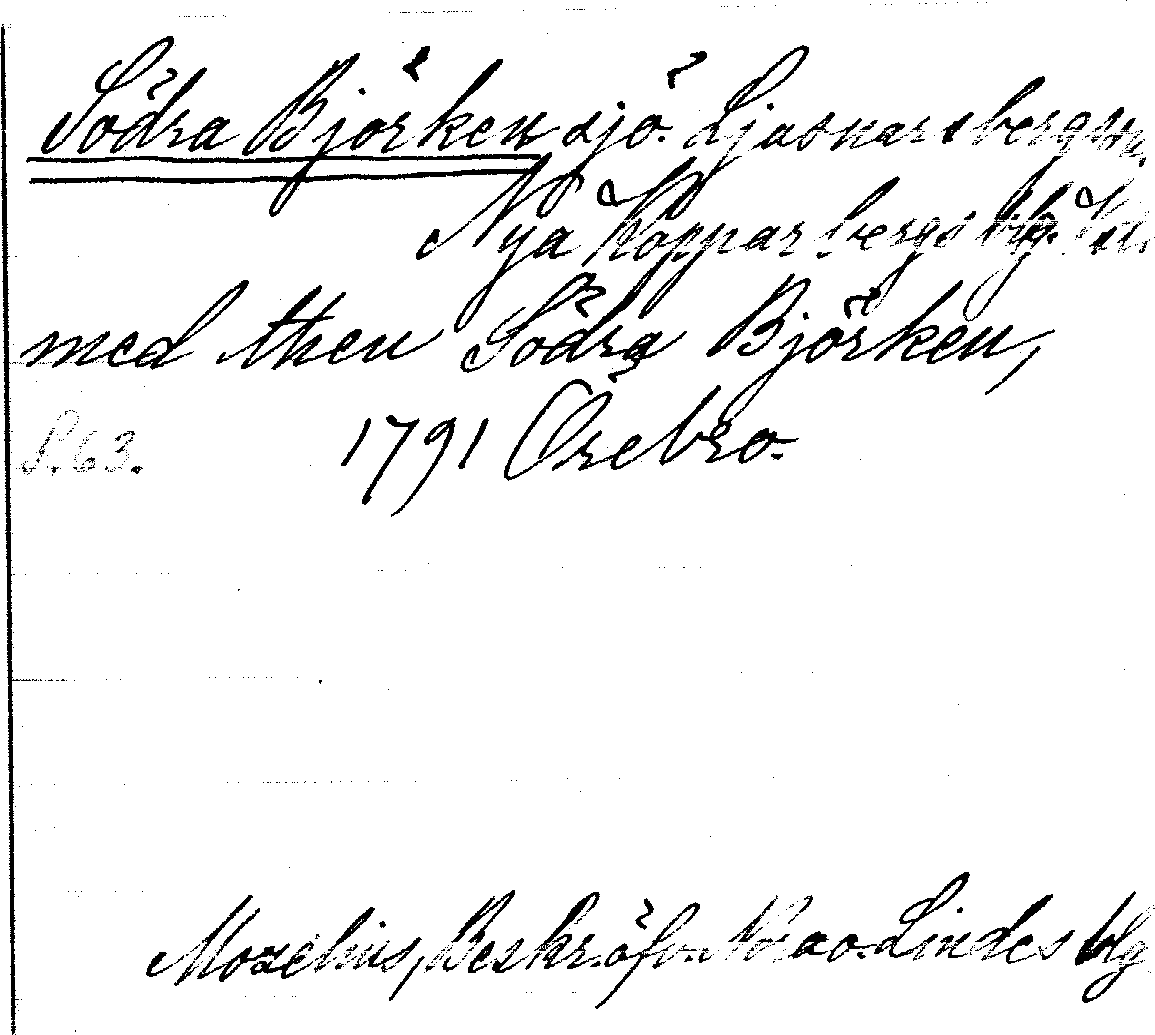 Södra Björken sjö. Ljusnarsbergs
Nya Kopparbergs
med then Södra Björken,
S. 63. 1791 Örebro.
Morelius, Beskr. öfv. Nora o. Lindes blg